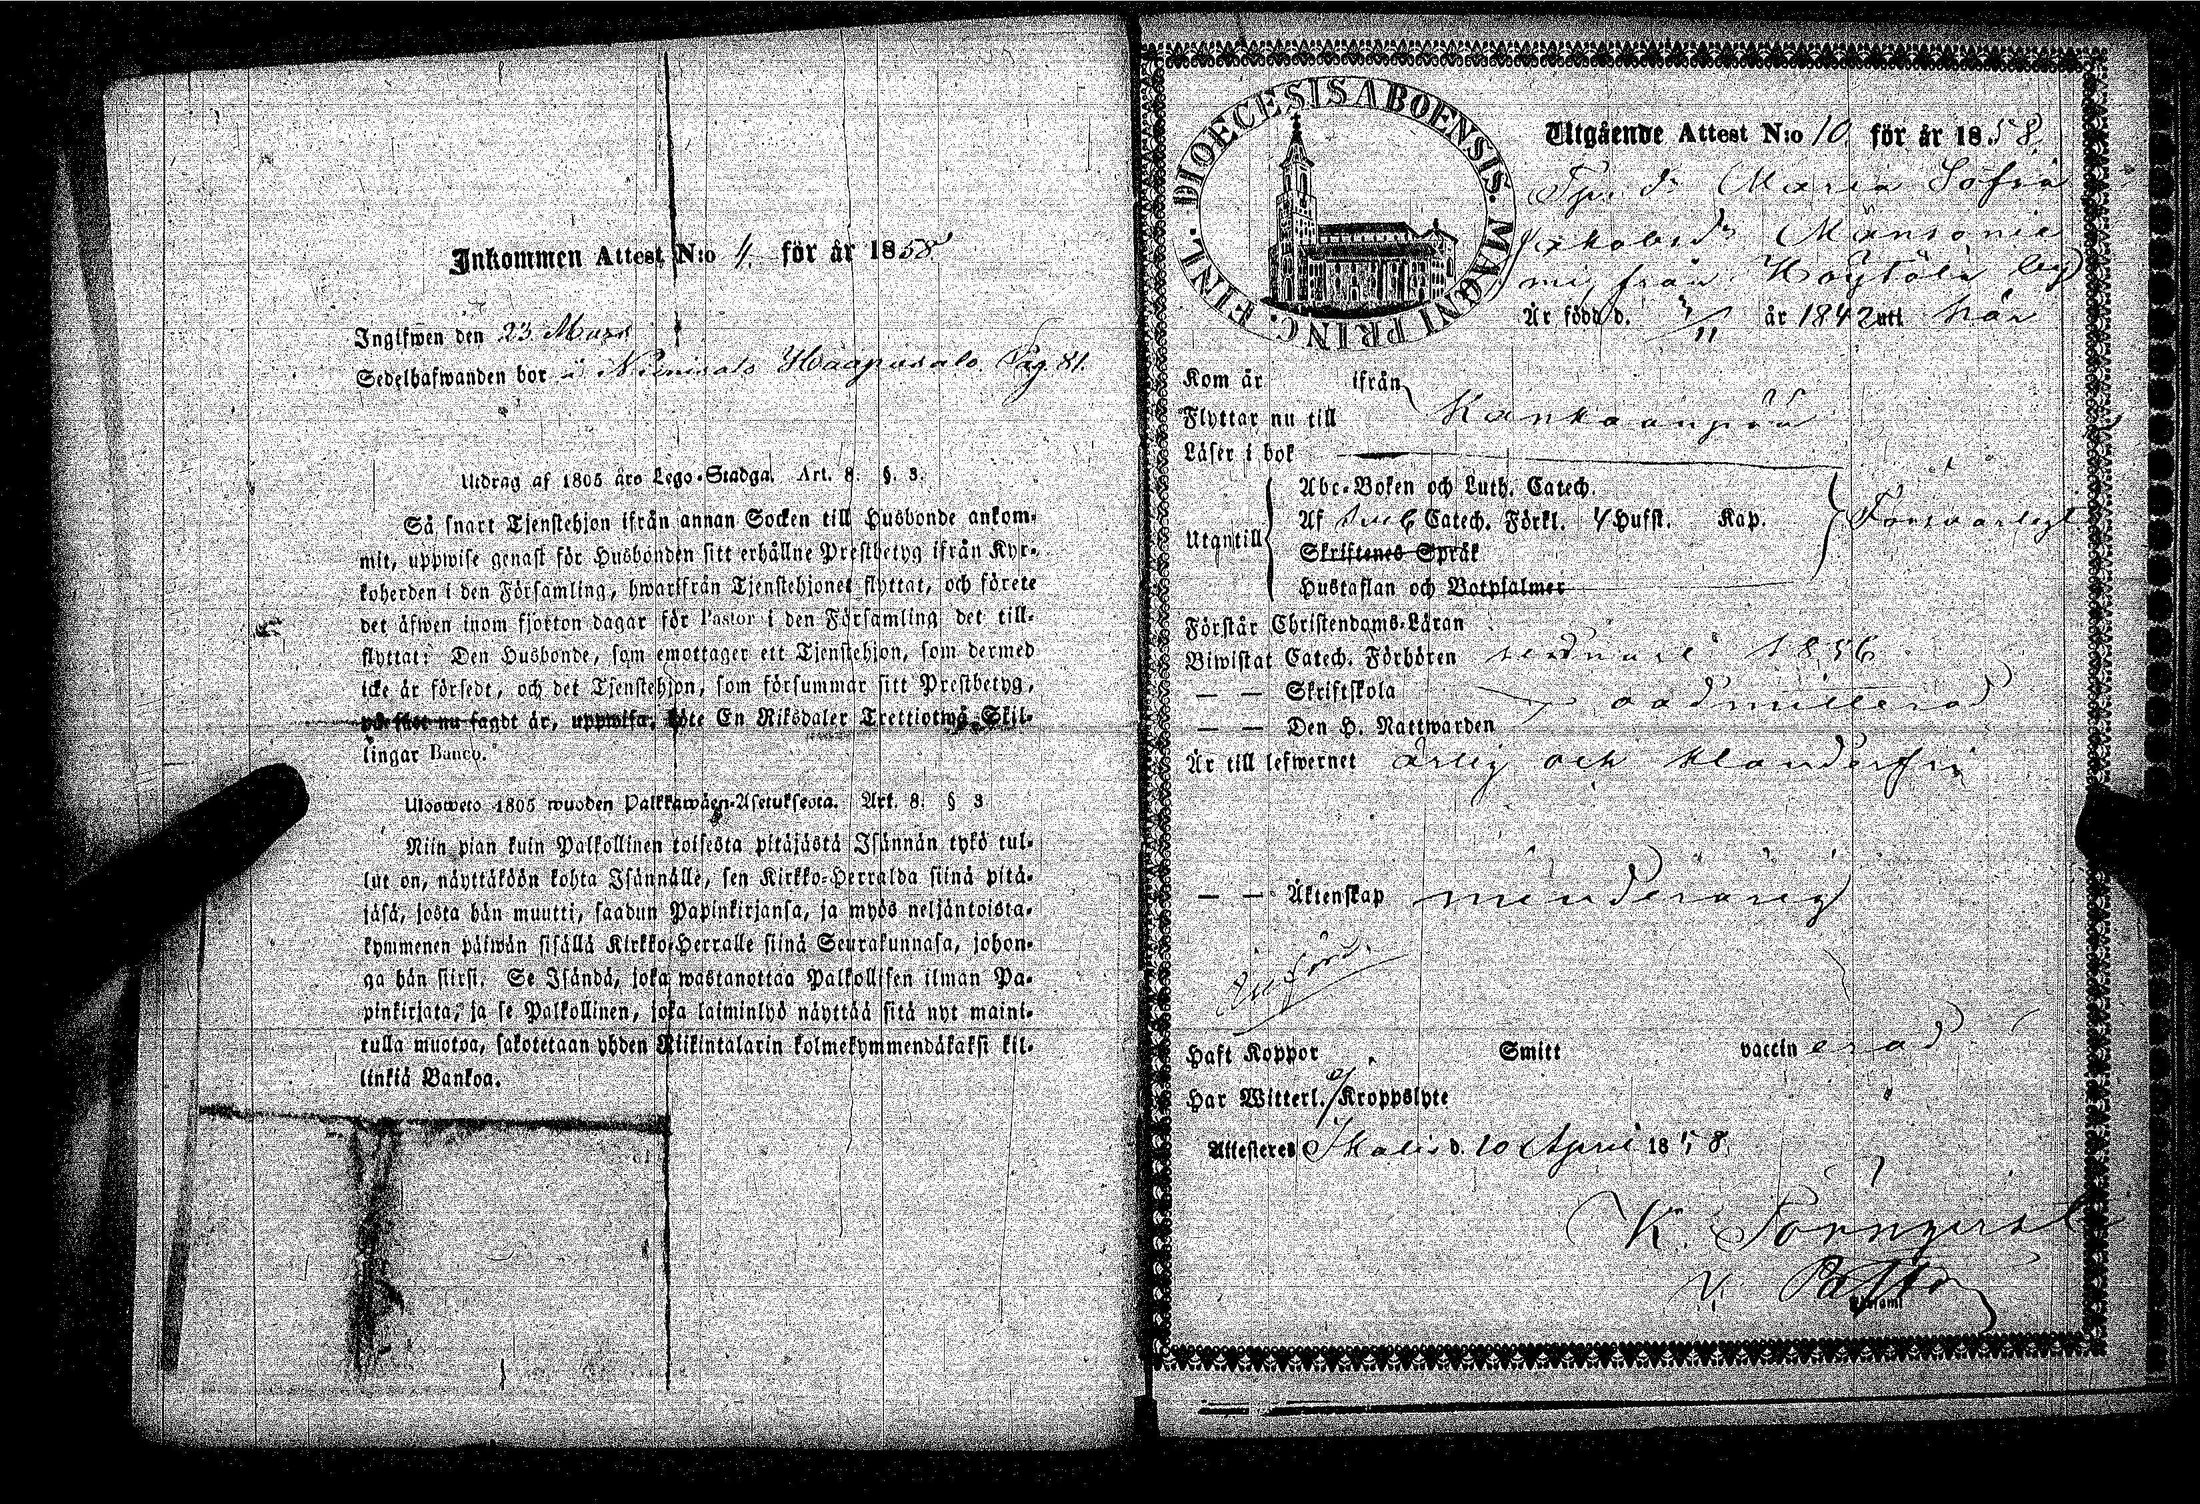 Inkommen Attest N:o 4. för år 1858.
Ingifwen den 23 Mars
Sedelhafwanden bor å Niemisalo Haapasalo. Pag. 81.
Utdrag af 1805 års Lego-Stadga. Art. 8. §. 3.
Så snart Tjenstehjon ifrån annan Socken till Husbonde ankom-
mit, uppwise genast för Husbonden sitt erhållne Prestbetyg ifrån Kyr-
koherden i den Församling, hwarifrån Tjenstehjonet flyttat, och förete
det äfwen inom fjorton dagar för Pastor i den Församling det till-
flyttat: Den Husbonde, som emottager ett Tjenstehjon, som dermed
icke är försedt, och det Tjenstehjon, som försummar sitt Prestbetyg,
på sätt nu sagdt är, uppwisa, böte En Riksdaler Trettiotwå Skil-
lingar Banco.
Ulosweto 1805 wuoden Palkkawäen-Asetuksesta. Art. 8. § 3
Niin pian kuin Palkollinen toisesta pitäjästä Isännän tykö tul-
lut on, näyttäköön kohta Isännälle, sen Kirkko-Herralda siinä pitä-
jäsä, josta hän muutti, saadun Papinkirjansa, ja myös neljäntoista-
kymmenen päiwän sisällä Kirkko-Herralle siinä Seurakunnasa, johon-
ga hän siirsi. Se Isändä, joka wastanottaa Palkollisen ilman Pa-
pinkirjata, ja se Palkollinen, joka laiminlyö näyttää sitä nyt maini-
tulla muotoa, sakotetaan yhden Riikintalarin kolmekymmendäkaksi kil-
linkiä Bankoa.
DIOECESIS ABOENSIS. MAGNI PRINC. FINL.
Utgående Attest N:o 10. för år 1858.
Maria Sofia
Jakobsdr
från Höytölä by
Är född d. /11 år 1842 uti här
Kom år ifrån
Flyttar nu till Kankaanpää
Läser i bok
Utantill
Abc-Boken och Luth. Catech.
Af Sveb Catech. Förkl. Hufst. Kap. Försvarligt
Skriftenes Språk
Hustaflan och Botpsalmer
Förstår Christendoms-Läran
Biwistat Catech. Förhören 1856
— — Skriftskola
— — Den H. Nattwarden oadmitterad
Är till lefwernet ärlig och klanderfri
— — Äktenskap minderårig
Haft Koppor Smitt vaccinerad
Har Witterl. ej Kroppslyte
Attesteres Ikalis d. 10 April 1858.
K. Törnqvist
V. Pastor